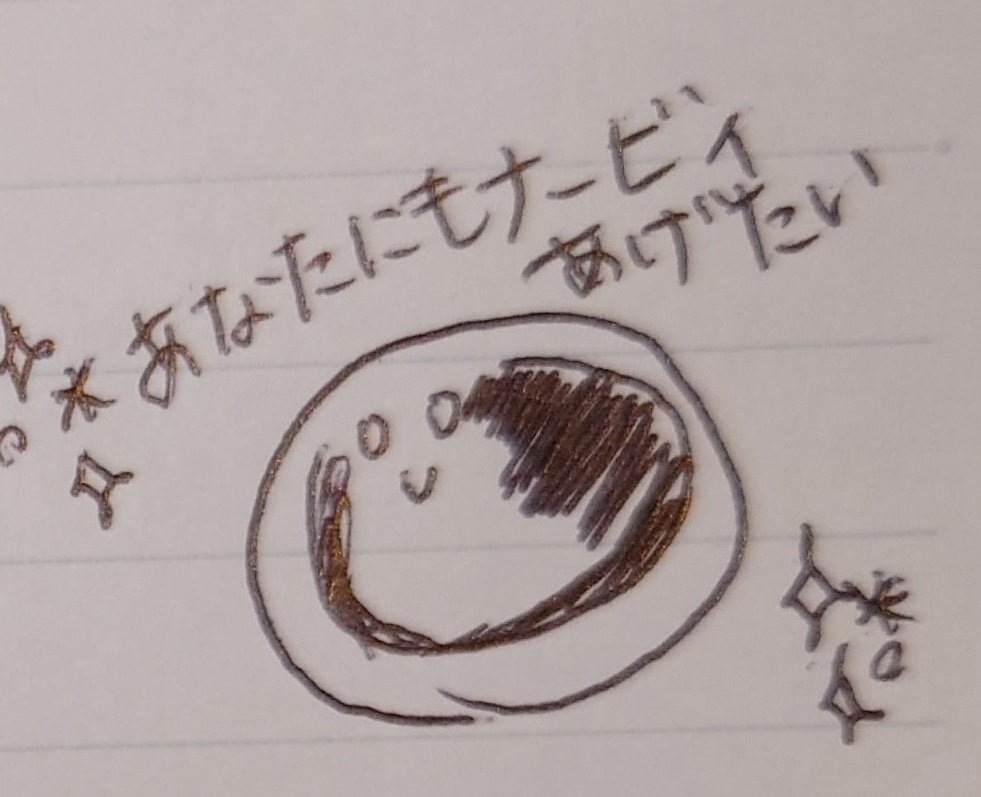 あなたにもナービィ
あげたい